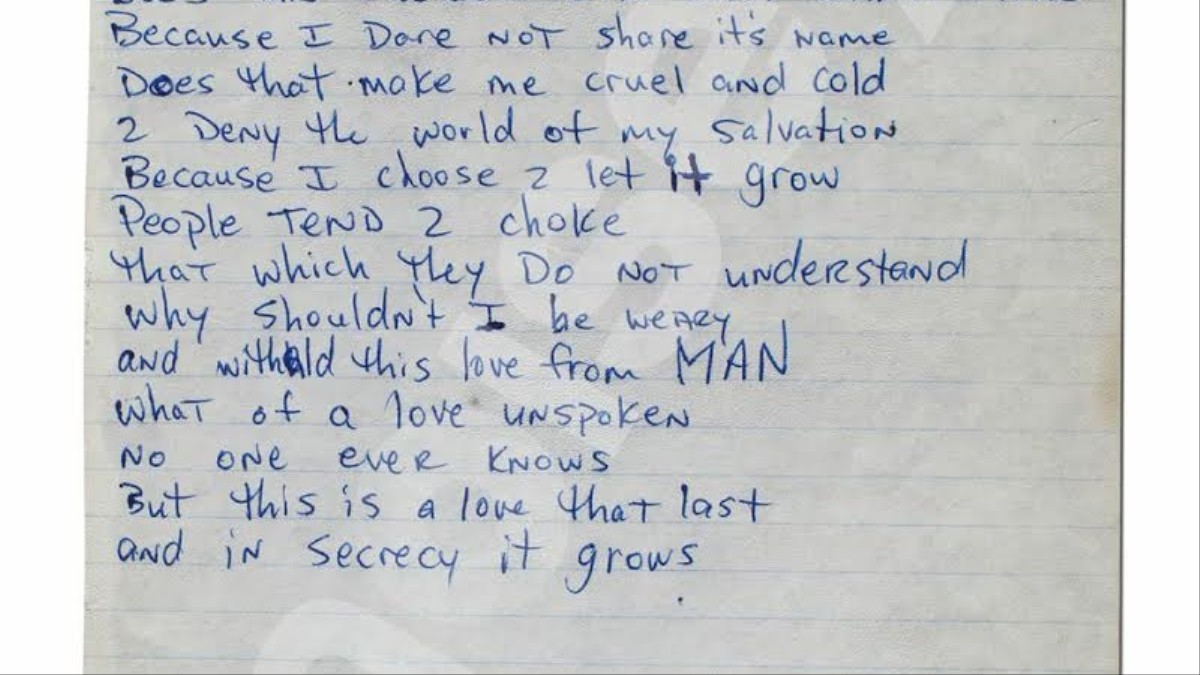 Because I Dare NOT share it's Name
Does that make me cruel and cold
2 Deny the world of my salvation
Because I choose 2 let it grow
People TEND 2 choke
that which they Do NOT understand
why shouldn't I be weary
and withhld this love from MAN
what of a love unspoken
No one ever knows
But this is a love that last
and in secrecy it grows